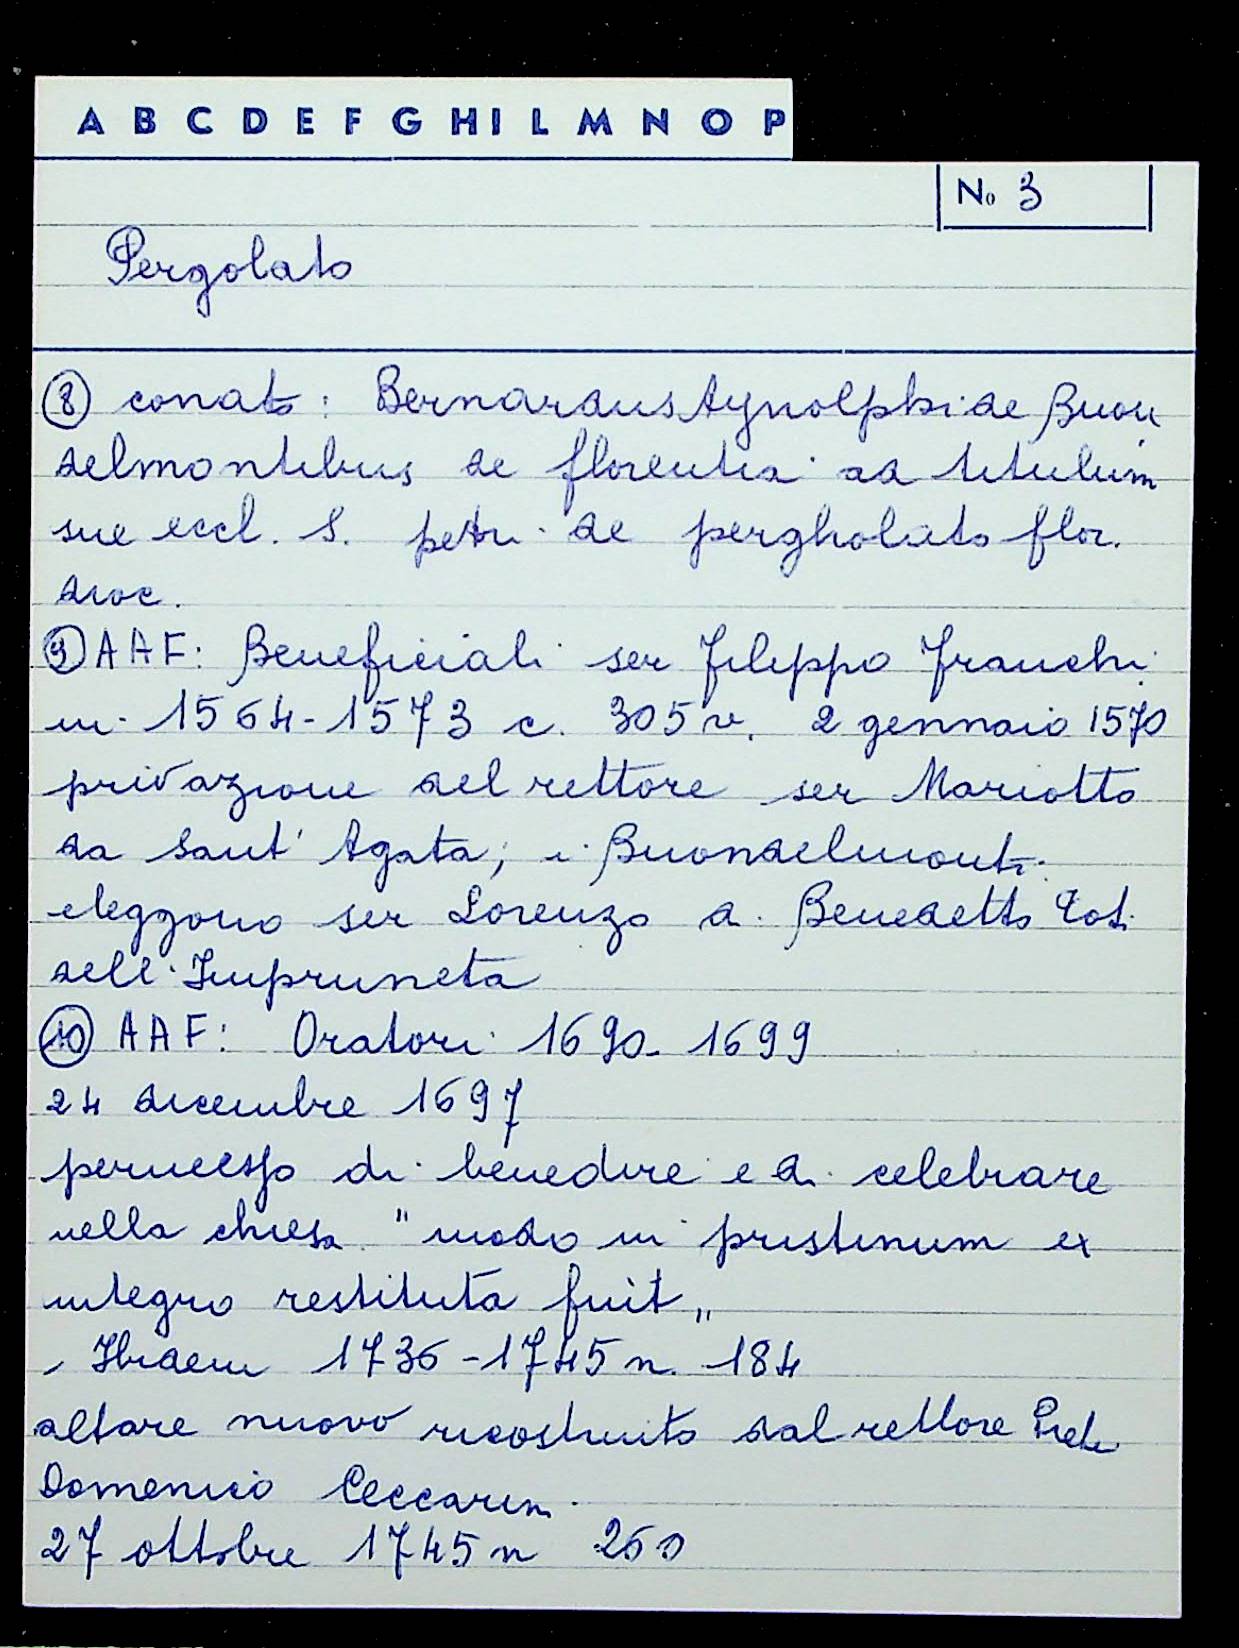 A B C D E F G H I L M N O P
No 3
Pergolato
8 conato: Bernardus Aynolphi de Buon
delmontibus de florentia ad titulum
sue eccl. S. petri de pergholato flor.
dioc.
9 AAF: Beneficiali ser Filippo Franchi
in 1564-1573 c. 305v. 2 gennaio 1570
privazione del rettore ser Mariotto
da Sant'Agata; i Buondelmonti
eleggono ser Lorenzo di Benedetto Toti
dell'Impruneta
10 AAF: Oratori 1690-1699
24 dicembre 1697
permesso di benedire e di celebrare
nella chiesa "modo in pristinum ex
integro restituta fuit„
, Ibidem 1736-1745 n. 184
altare nuovo ricostruito dal rettore Prete
Domenico Ceccarini
27 ottobre 1745 n 260